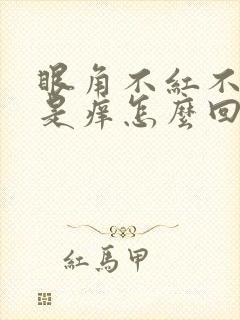 眼角不紅不
是痒怎麼回
紅馬甲